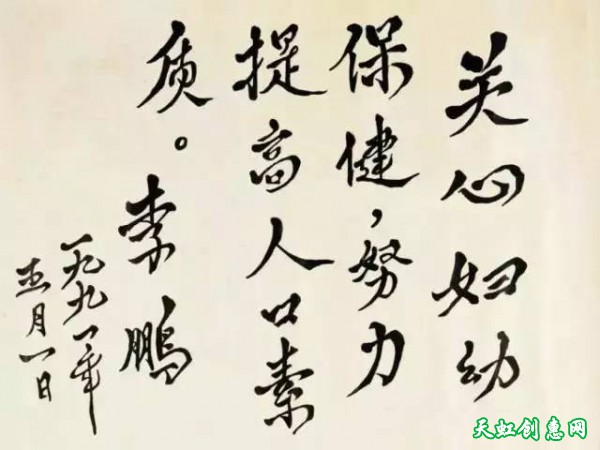 关心妇幼
保健，努力
提高人口素
质。李鹏
一九九一年
五月一日
天虹创惠网